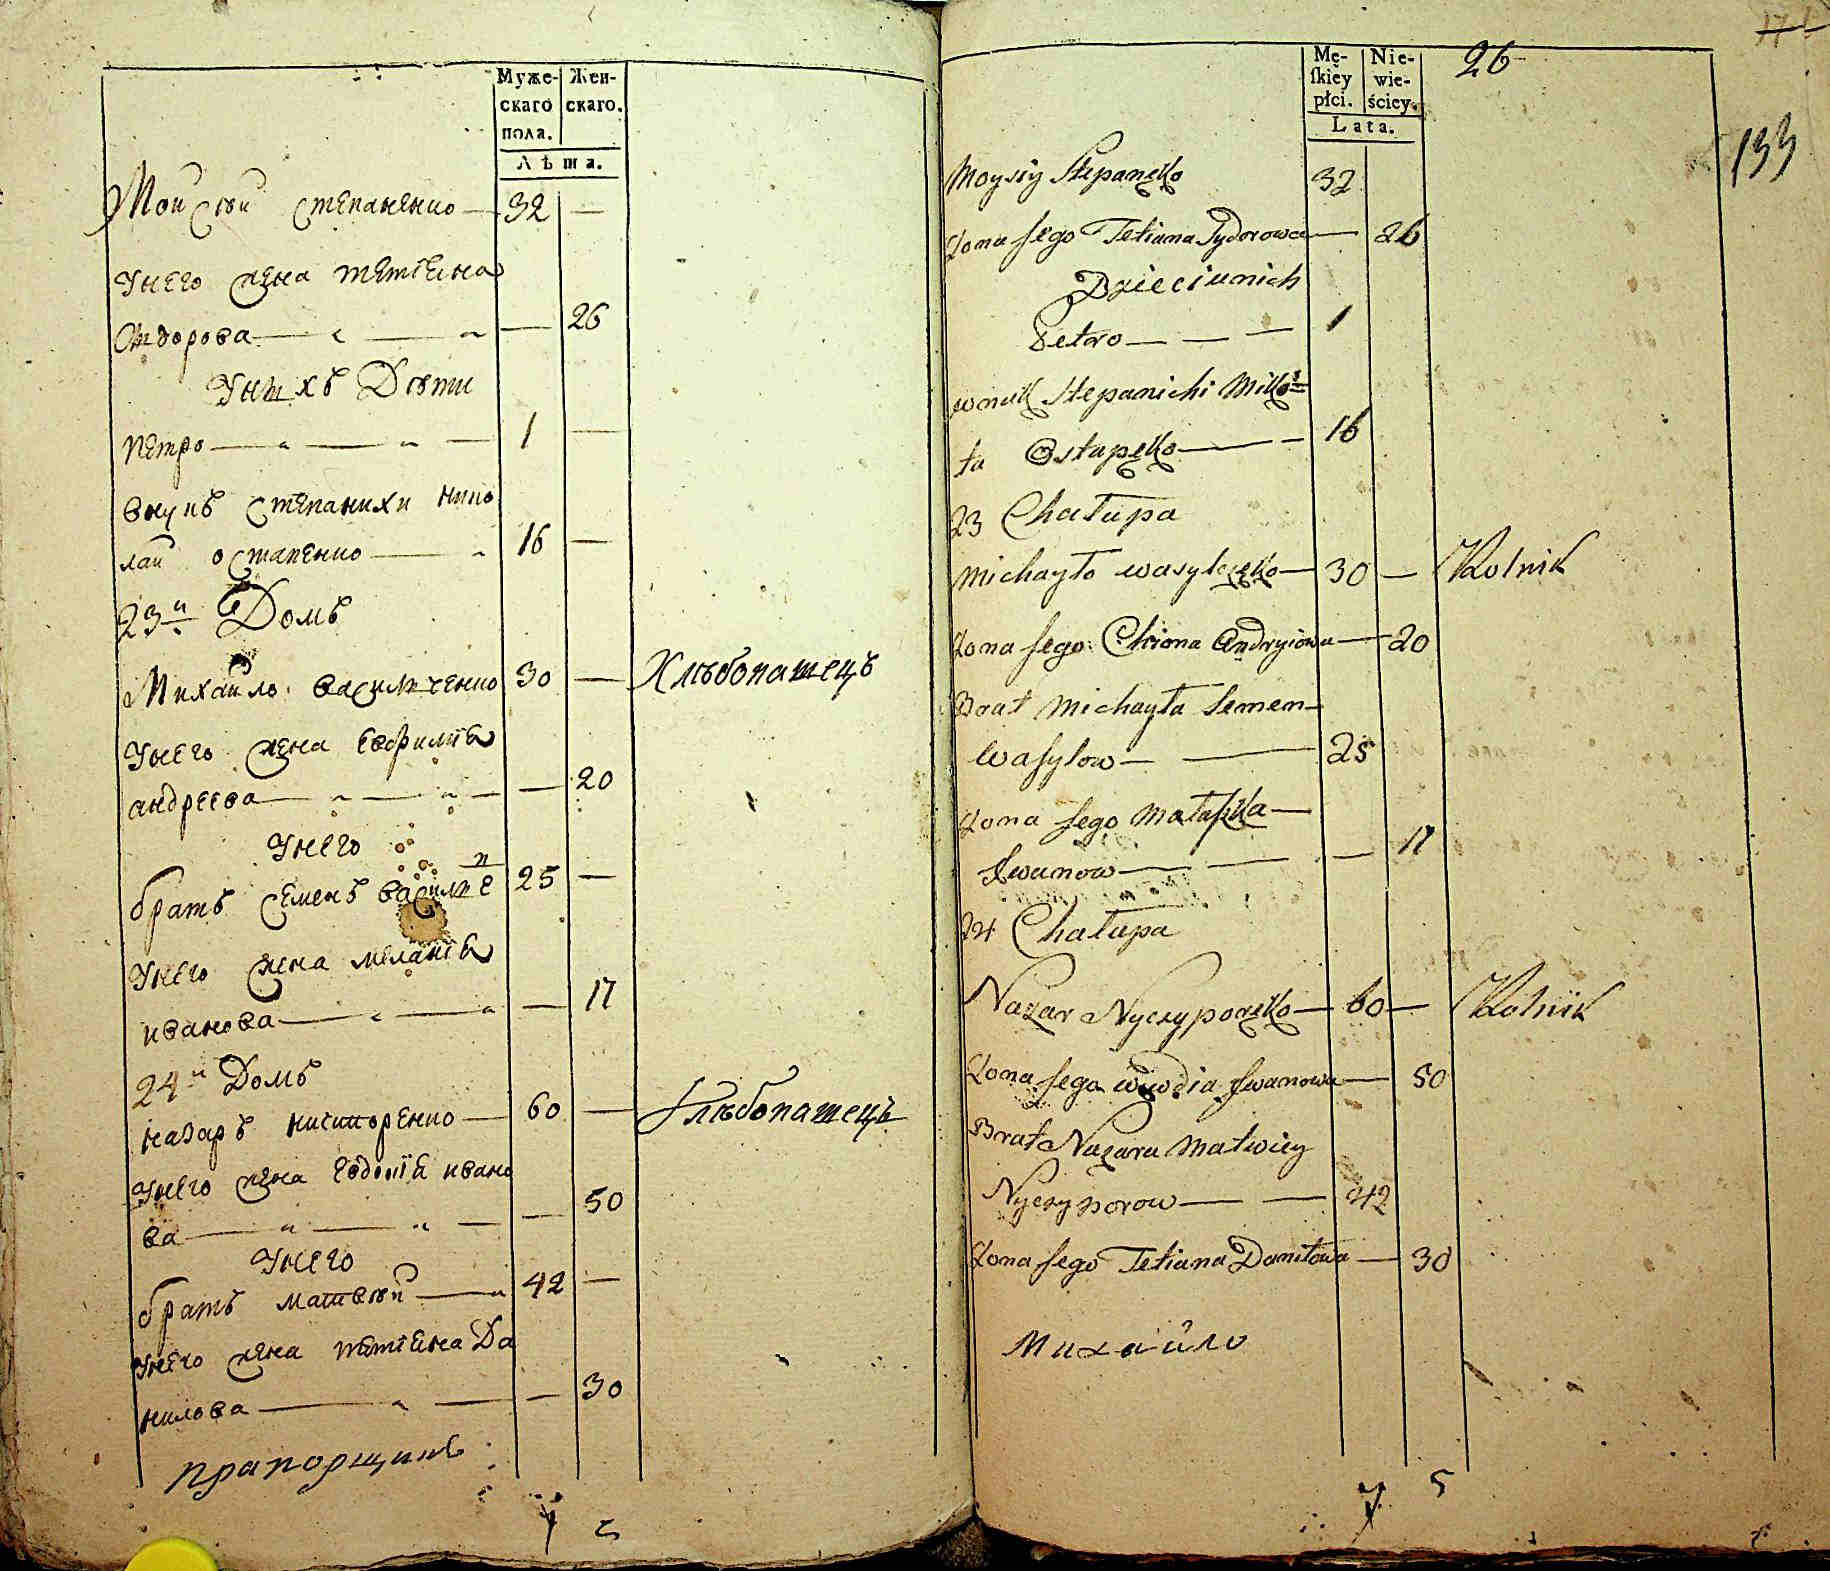 Муже- Жен-
скаго скаго.
пола.
Лѣта.
Мойсѣй Степаненко — 32 —
Унего жена тетіана
Сидорова — „ — „ — 26
Унихъ Дѣти
петро — „ — „ — 1 —
внукъ степанихи нико
лай остапенко — „ 16 —
23й Домъ
Михайло василченко 30 — Хлѣбопашецъ
Унего жена евфиміа
андреева — „ — „ — — 20
Унего
братъ семенъ василе 25 —
Унего жена меланіа
иванова — „ — „ — 17
24й Домъ
назаръ ничипоренко — 60 — Хлѣбопашецъ
Унего жена евдокіа ивано
ва — „ — „ — — 50
Унего
братъ матвѣй — „ 42 —
Унего жена тетіана Да
нилова — „ — — 30
прапорщикъ
7 5
26
133
Mę- Nie-
skiey wie-
płci. ściey.
Lata.
Moysiy Stepanęko 32
Zona Jego Tetiana Sydorowa — 26
Dzieci unich
Petro — — — 1
wnuk Stepanichi Miko=
ła Ostapęko — — 16
23 Chałupa
Michayło wasylczęko — 30 — Rolnik
Zona Jego Chiona Andryiowa — 20
Brat Michayła Semen —
Wasylow — — 25
Zona Jego Małaszka —
Iwanow — — — 17
24 Chałupa
Nazar Nyczyporęko — 60 — Rolnik
Zona Jego Wiwdia Iwanowa — 50
Brat Nazara Matwiey
Nyczyporow — — 42
Zona Jego Tetiana Daniłowa — 30
Михайло
7 5